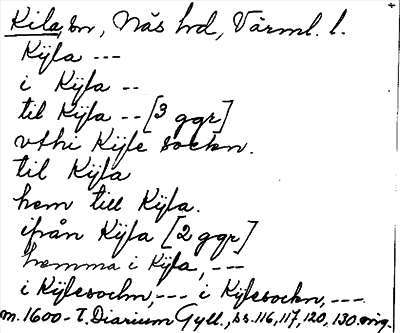 Kila, sn, Näs hd, Värml. l.
Kÿla ---
i Kÿla --
til Kÿla -- [3 ggr]
vthi Kÿle sockn.
til Kÿla
hem till Kÿla.
ifrån Kÿla [2 ggr]
hemma i Kÿla, ---
i Kÿlesochn, --- i Kÿlesockn, ---
m. 1600-t. Diarium Gyll., ss. 116, 117, 120, 130. orig.